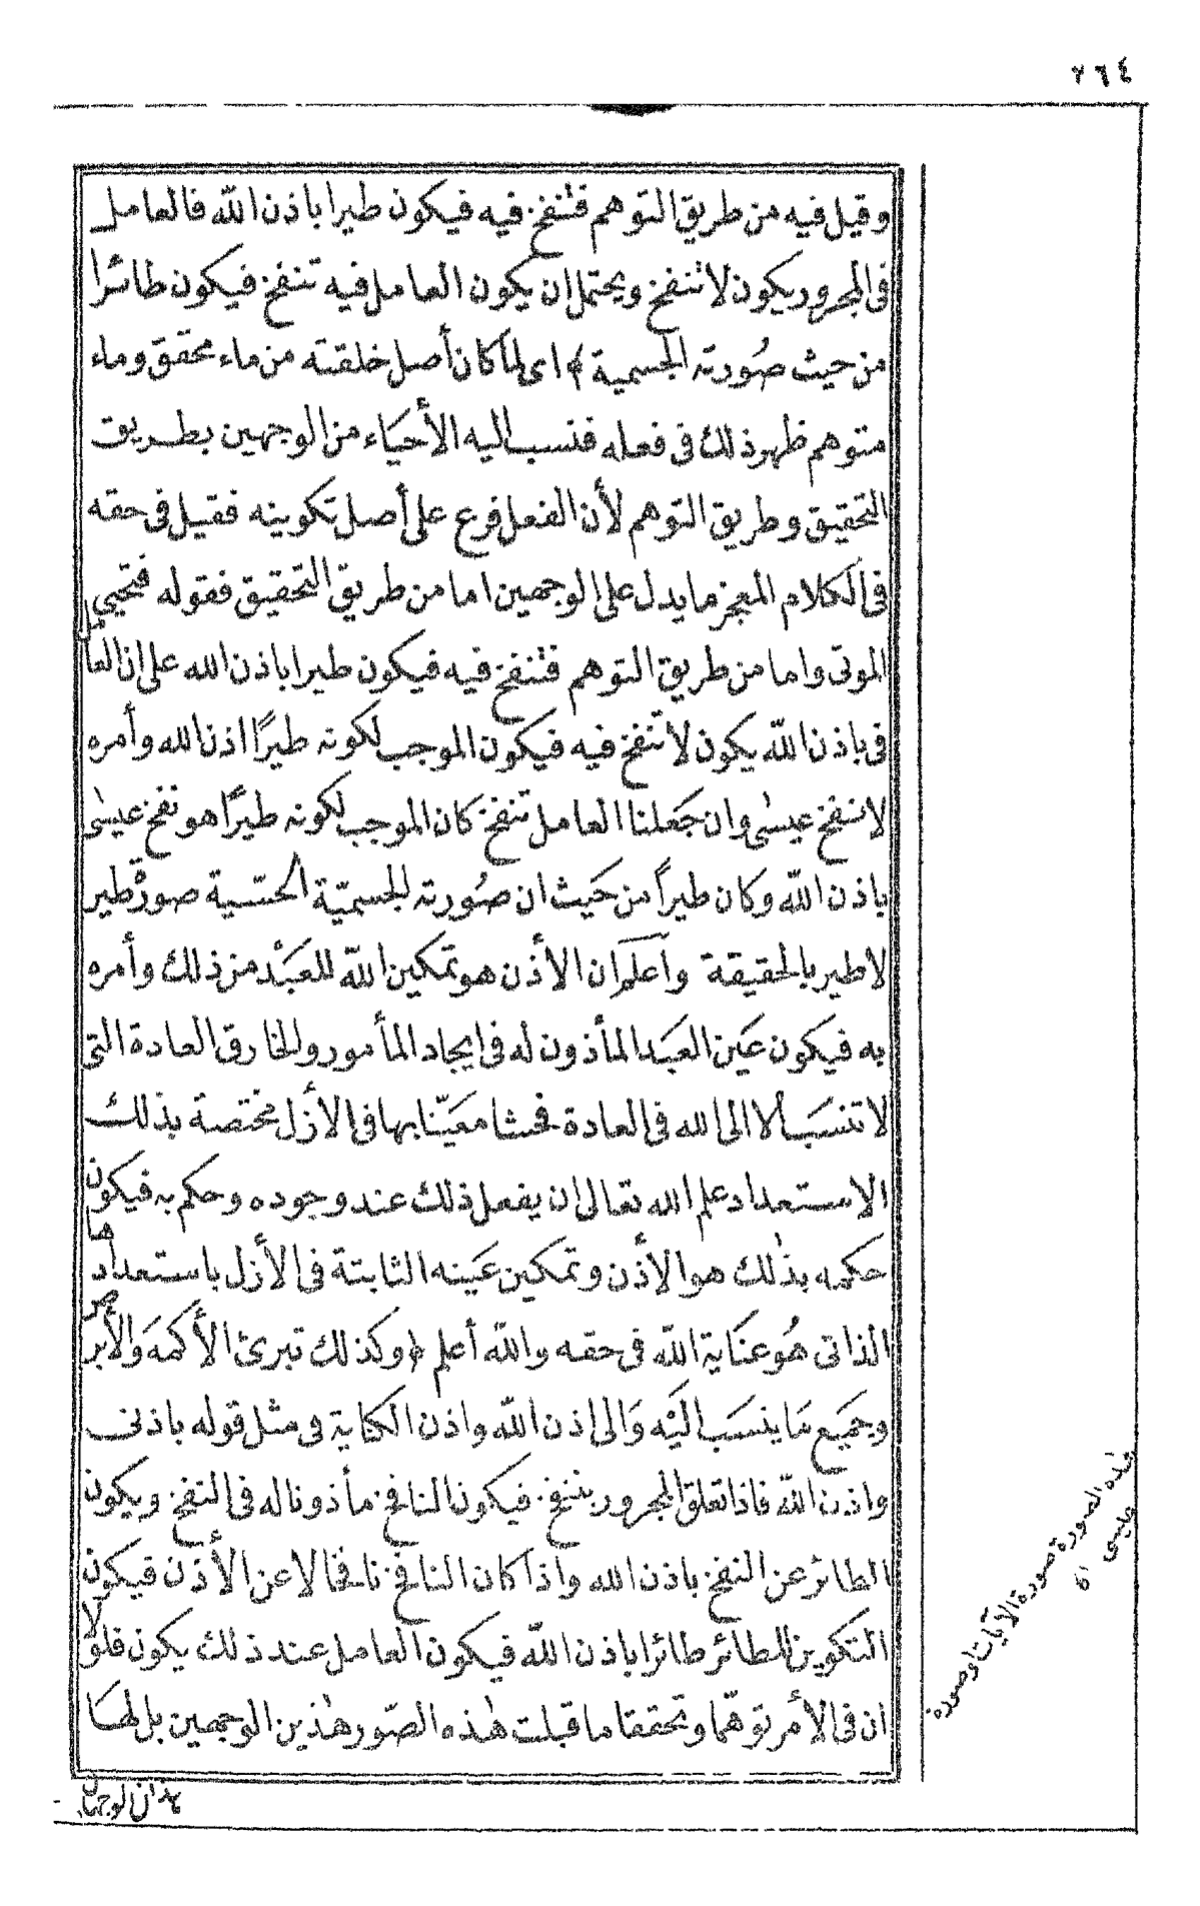 ٧٦٤
وقيل فيه من طريق التوهم فتنفخ فيه فيكون طيرا باذن الله فالعامل
فى المجرور يكون لا تنفخ ويحتمل ان يكون العامل فيه تنفخ فيكون طائرا
من حيث صُورته الجسمية ﴾ اى لما كان أصل خلقته من ماء محقق وماء
متوهم ظهر ذلك فى فعله فنسب اليه الأحيَاء من الوجهين بطريق
التحقيق وطريق التوهم لأن الفعل فرع على أصل تكوينه فقيل فى حقه
فى الكلام المعجز ما يدل على الوجهين اما من طريق التحقيق فقوله فتحيى
الموتى واما من طريق التوهم فتنفخ فيه فيكون طيرا باذن الله على ان العامل
فى باذن الله يكون لا تنفخ فيه فيكون الموجب لكونه طيرًا اذن الله وأمره
لا نفخ عيسٰى وان جَعلنا العامل تنفخ كان الموجب لكونه طيرًا هو نفخ عيسٰى
باذن الله وكان طيراً من حَيث ان صُورته الجسميّة الحسّية صورة طير
لا طير بالحقيقة واعلم ان الأذن هو تمكين الله للعَبْد من ذلك وأمره
به فيكون عَين العَبَد المأذون له فى ايجاد المأمور والخارق العادة التى
لا تنسَب الا الى الله فى العادة فحشا معَيّنا بها فى الأزل مختصة بذلك
الاستعداد علم الله تعالى ان يفعل ذلك عند وجوده وحكم به فيكون
حكمه بذٰلك هو الأذن وتمكين عَينه الثابتة فى الأزل باستعدادها
الذاتى هُو عنَاية الله فى حقه والله أعلم ﴿ وكذلك تبرئ الأكمهَ وَالأبرص
وجميَع مَا ينسَب اليْه وَالى اذن الله واذن الكناية فى مثل قوله باذنى
واذن الله فاذا تعلق المجرور بتنفخ فيكون النافخ مأذونا له فى النفخ ويكون
الطائر عن النفخ باذن الله واذا كان النافخ نافخا لا عن الأذن فيكون
التكوين للطائر طائرا باذن الله فيكون العامل عند ذلك يكون فلولا
ان فى الأمر توهّما وتحققا ما قبلت هٰذه الصّور هٰذين الوجهين بل لهَا
هذان الوجهان
هذه الصورة صورة الآيات او صورة
عليسى